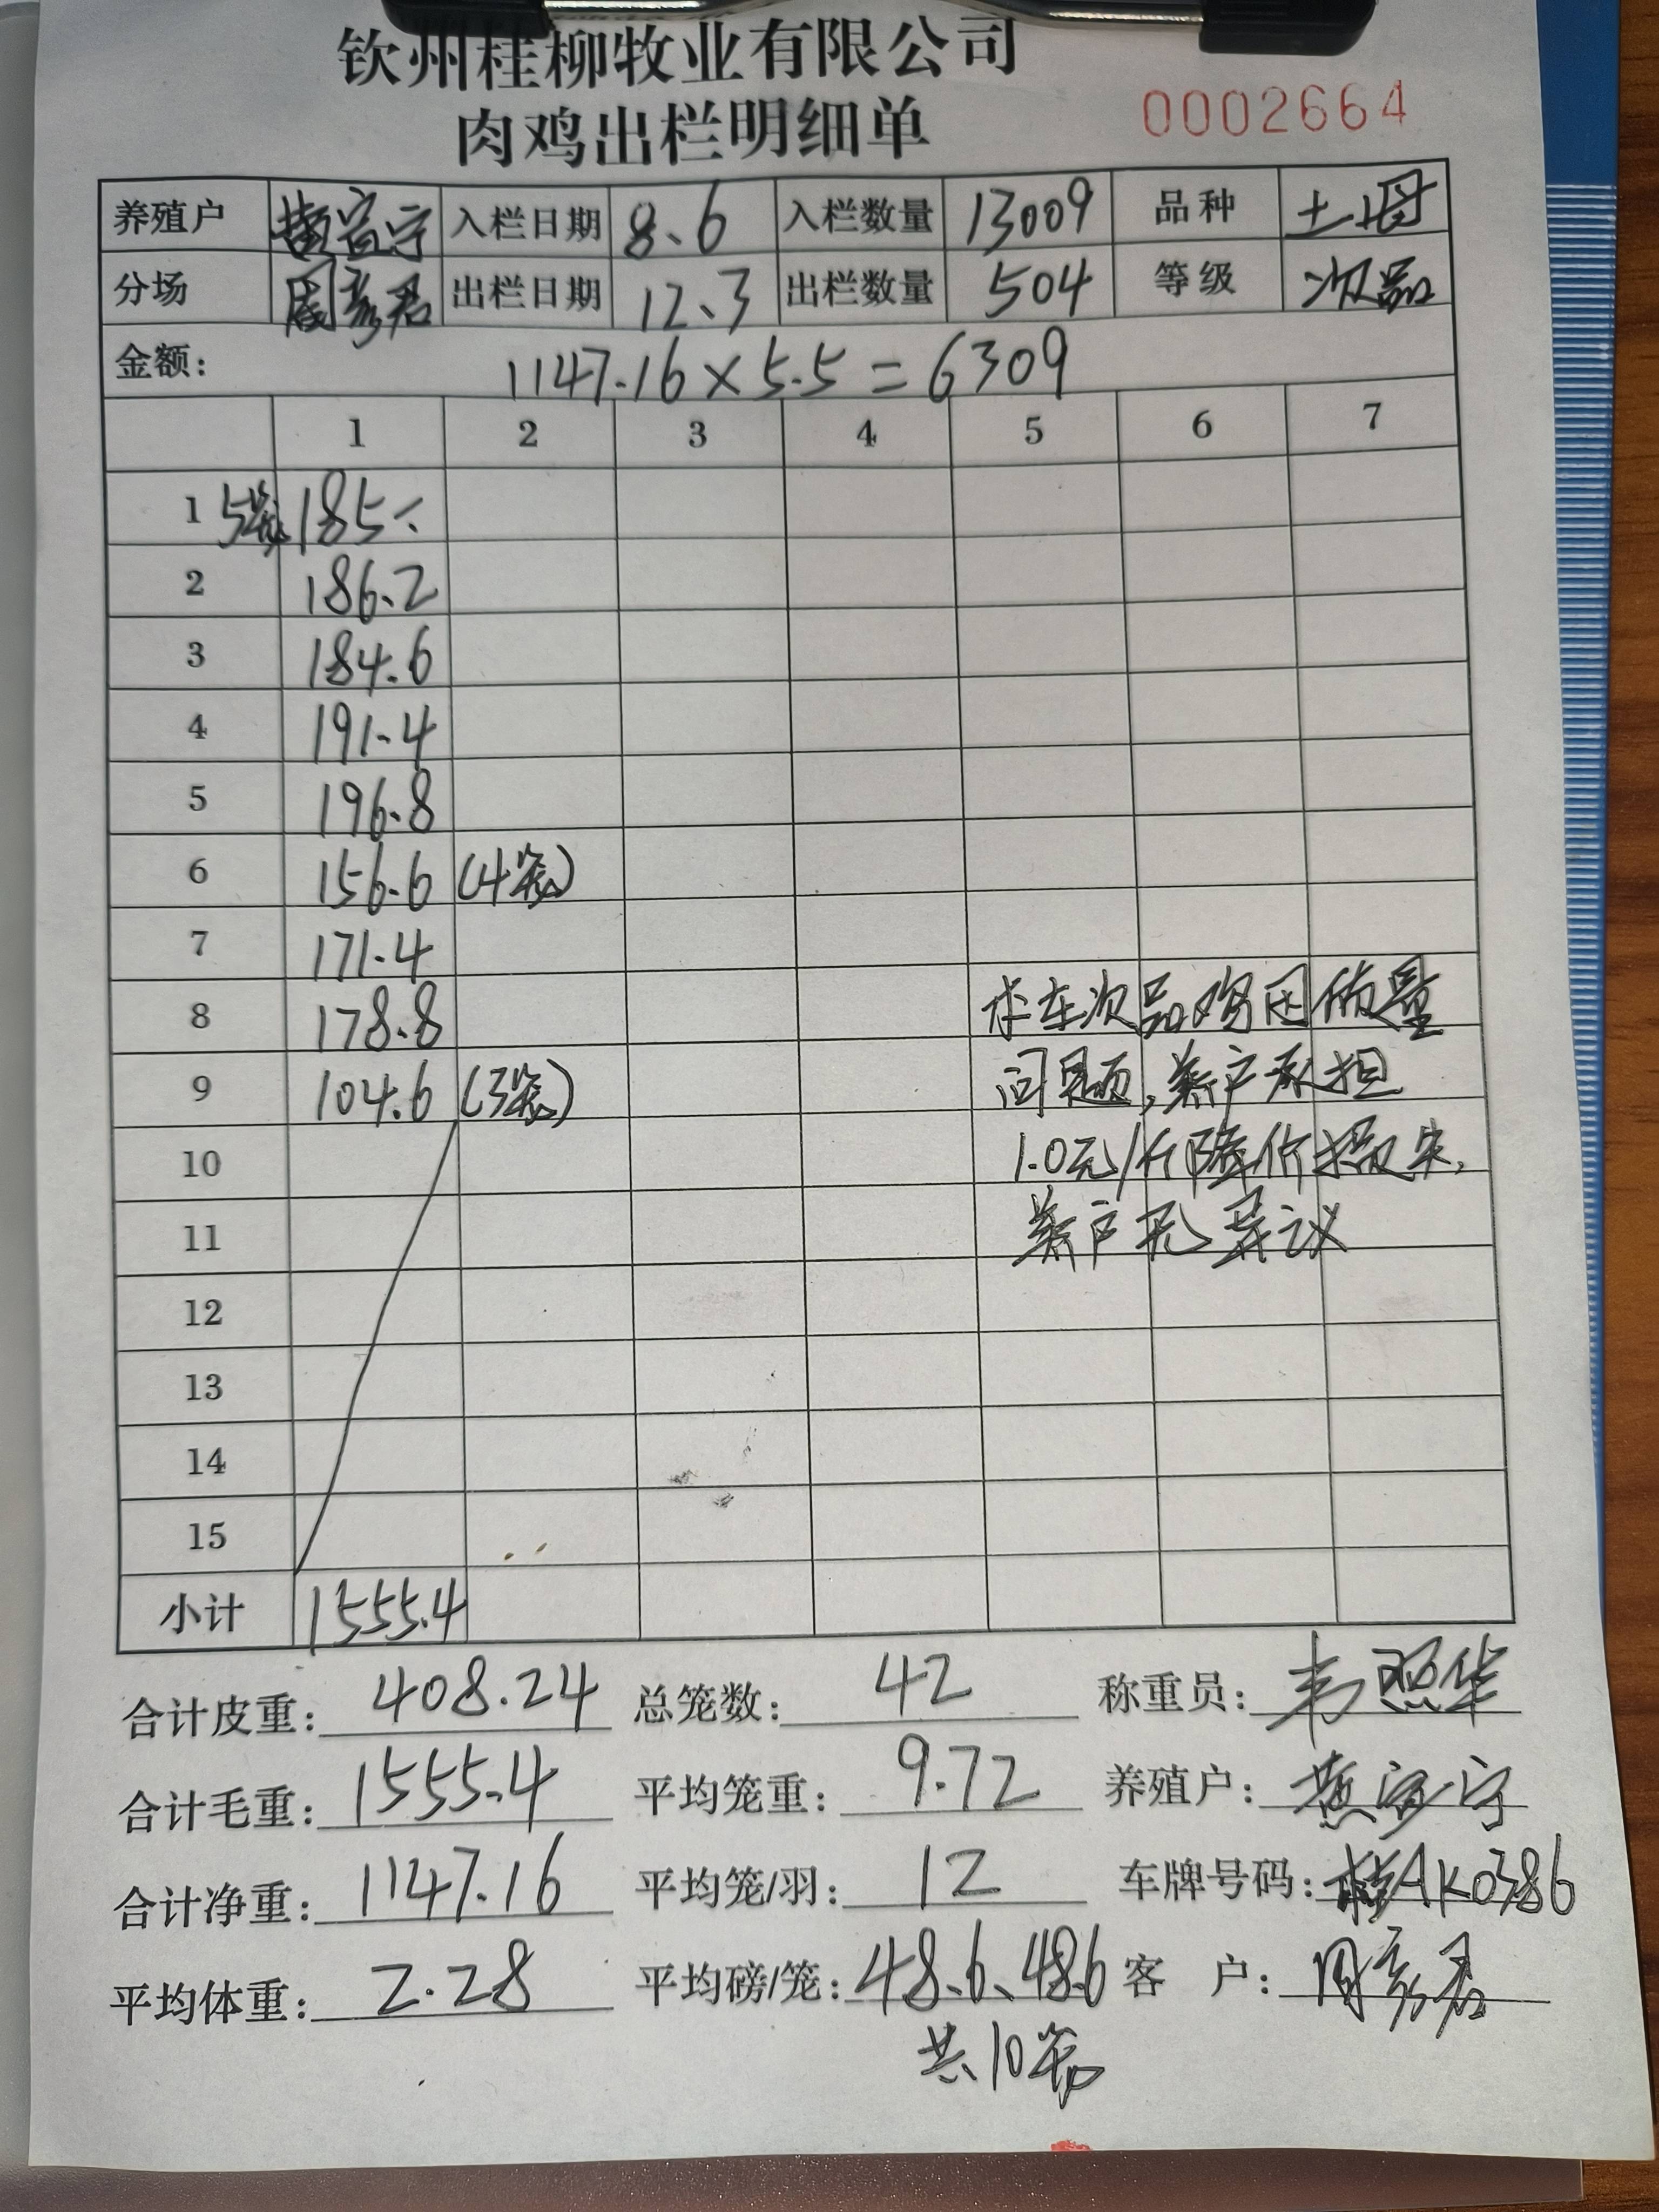 钦州桂柳牧业有限公司
肉鸡出栏明细单
0002664
养殖户 黄富宁 入栏日期 8.6 入栏数量 13009 品种 土母
分场 周彦君 出栏日期 12.3 出栏数量 504 等级 次品
金额: 1147.16×5.5=6309
1 2 3 4 5 6 7
1 5笼 185.-
2 186.2
3 184.6
4 191.4
5 196.8
6 156.6 (4笼)
7 171.4
8 178.8
9 104.6 (3笼)
10
11
12
13
14
15
本车次品鸡因质量
问题,养户承担
1.0元/斤降价损失,
养户无异议
小计 1555.4
合计皮重: 408.24 总笼数: 42 称重员: 韦照华
合计毛重: 1555.4 平均笼重: 9.72 养殖户: 黄富宁
合计净重: 1147.16 平均笼/羽: 12 车牌号码: 桂AK0386
平均体重: 2.28 平均磅/笼: 48.6、48.6 客 户: 周彦君
共10笼